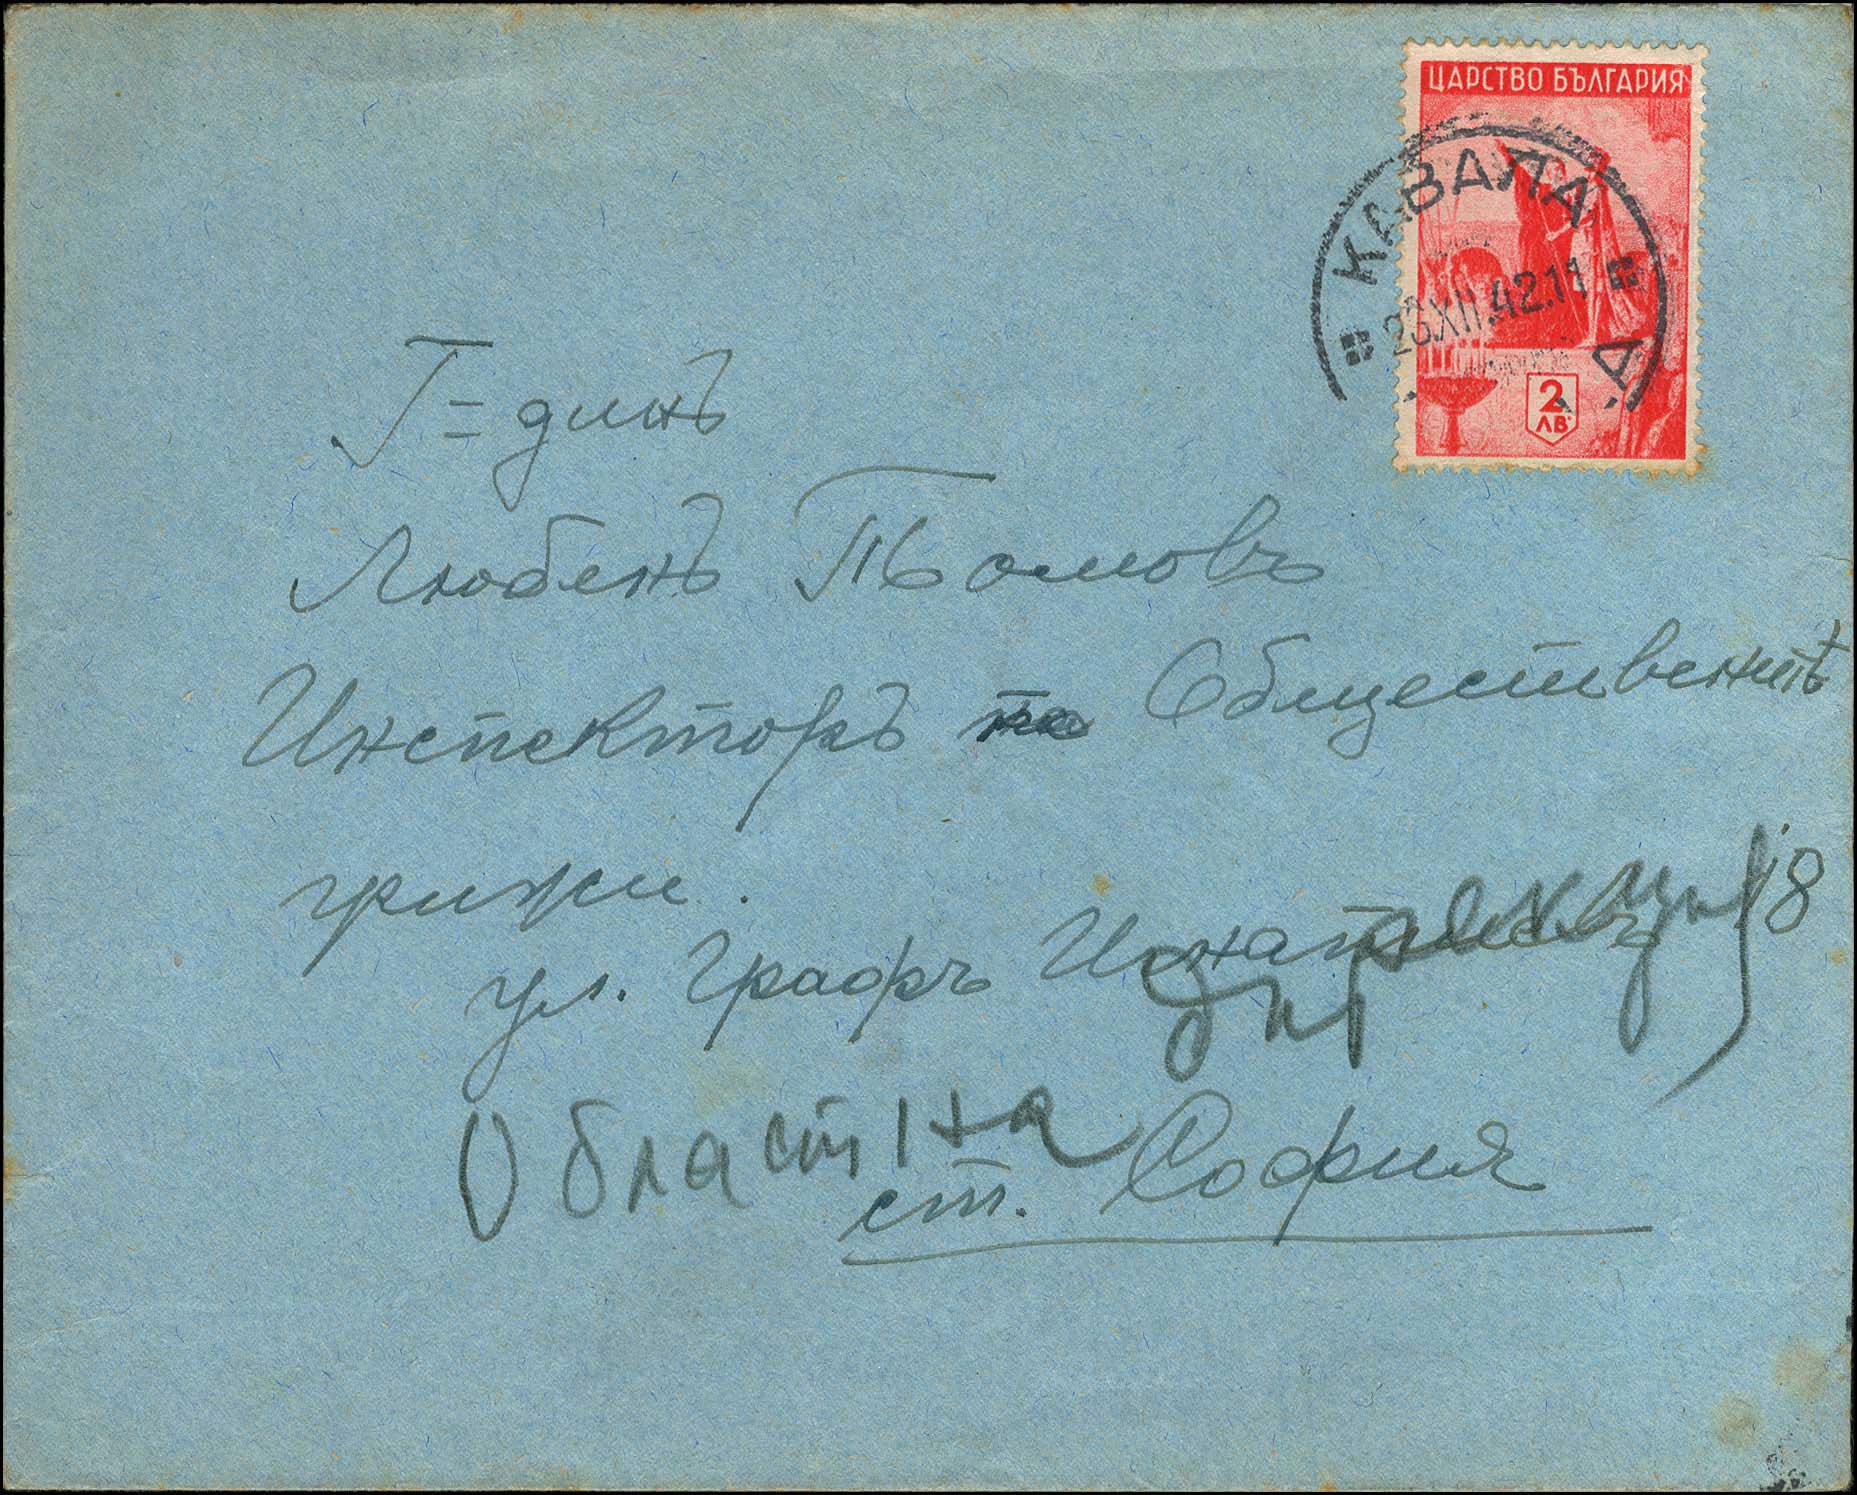 ЦАРСТВО БЪЛГАРИЯ
КАВАЛА
23.XII.42.11
Д
2
ЛВ
Г=динъ
Любенъ Томовъ
Инспекторъ Обществените
грижи.
ул. Графъ Игнатиевъ 18
Областна дирекция
ст. София